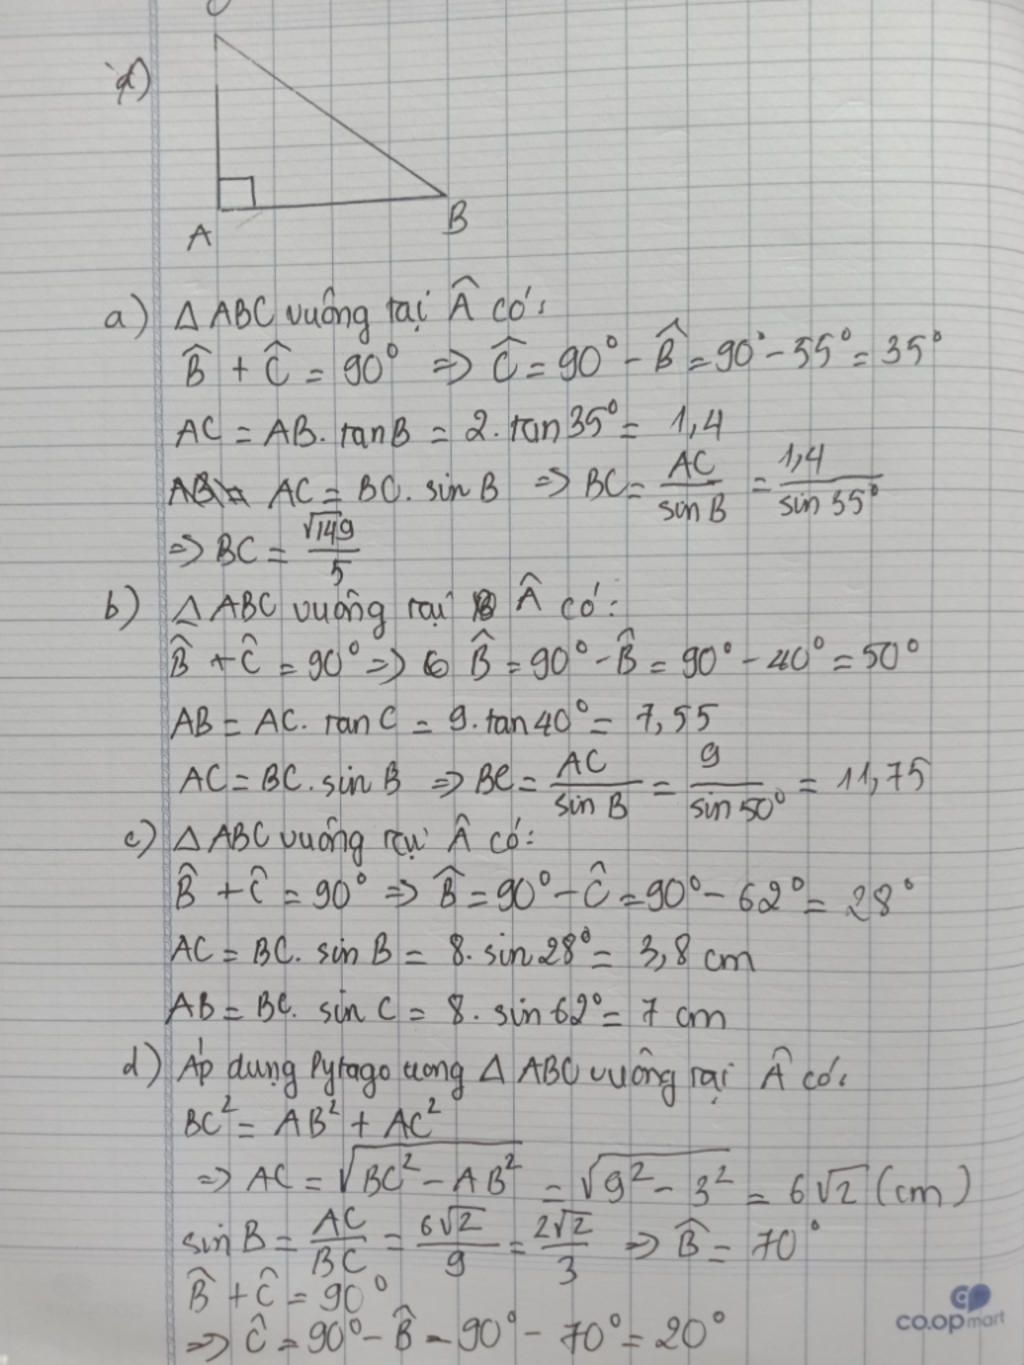 d)
A
B
a) △ABC vuông tại Â có:
B̂ + Ĉ = 90° => Ĉ = 90° - B̂ = 90° - 55° = 35°
AC = AB. tanB = 2. tan35° = 1,4
AC = BC. sin B => BC = AC/sin B = 1,4/sin 35°
=> BC = √149/5
b) △ABC vuông tại Â có:
B̂ + Ĉ = 90° => B̂ = 90° - B̂ = 90° - 40° = 50°
AB = AC. tan C = 9. tan40° = 7,55
AC = BC. sin B => BC = AC/sin B = 9/sin 50° = 11,75
c) △ABC vuông tại Â có:
B̂ + Ĉ = 90° => B̂ = 90° - Ĉ = 90° - 62° = 28°
AC = BC. sin B = 8. sin28° = 3,8 cm
AB = BC. sin C = 8. sin 62° = 7 cm
d) Áp dụng Pytago trong △ABC vuông tại Â có:
BC² = AB² + AC²
=> AC = √(BC² - AB²) = √(9² - 3²) = 6√2 (cm)
sin B = AC/BC = 6√2/9 = 2√2/3 => B̂ = 70°
B̂ + Ĉ = 90°
=> Ĉ = 90° - B̂ = 90° - 70° = 20°
co.opmart